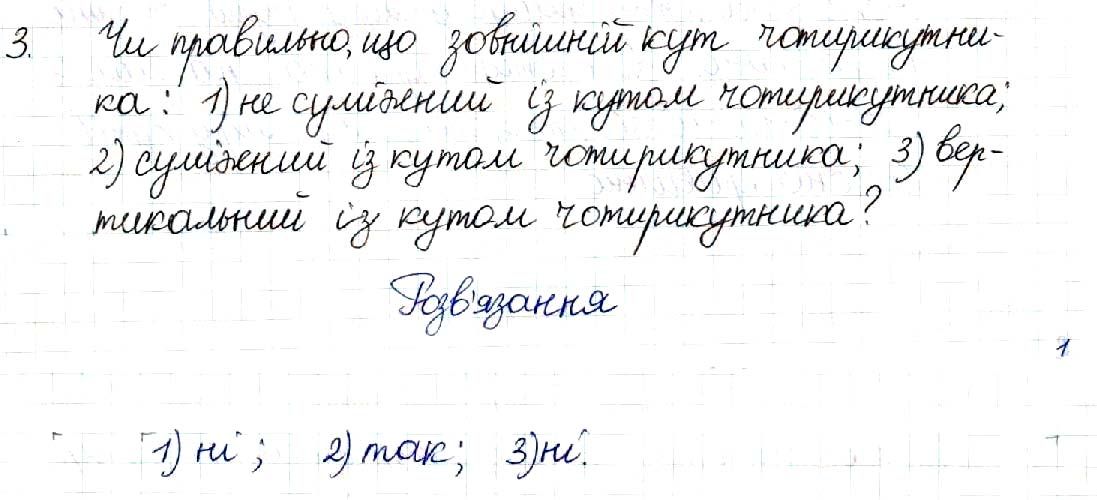 3. Чи правильно, що зовнішній кут чотирикутни-
ка: 1) не суміжний із кутом чотирикутника;
2) суміжний із кутом чотирикутника; 3) вер-
тикальний із кутом чотирикутника?
Розв'язання
1
1) ні; 2) так; 3) ні.